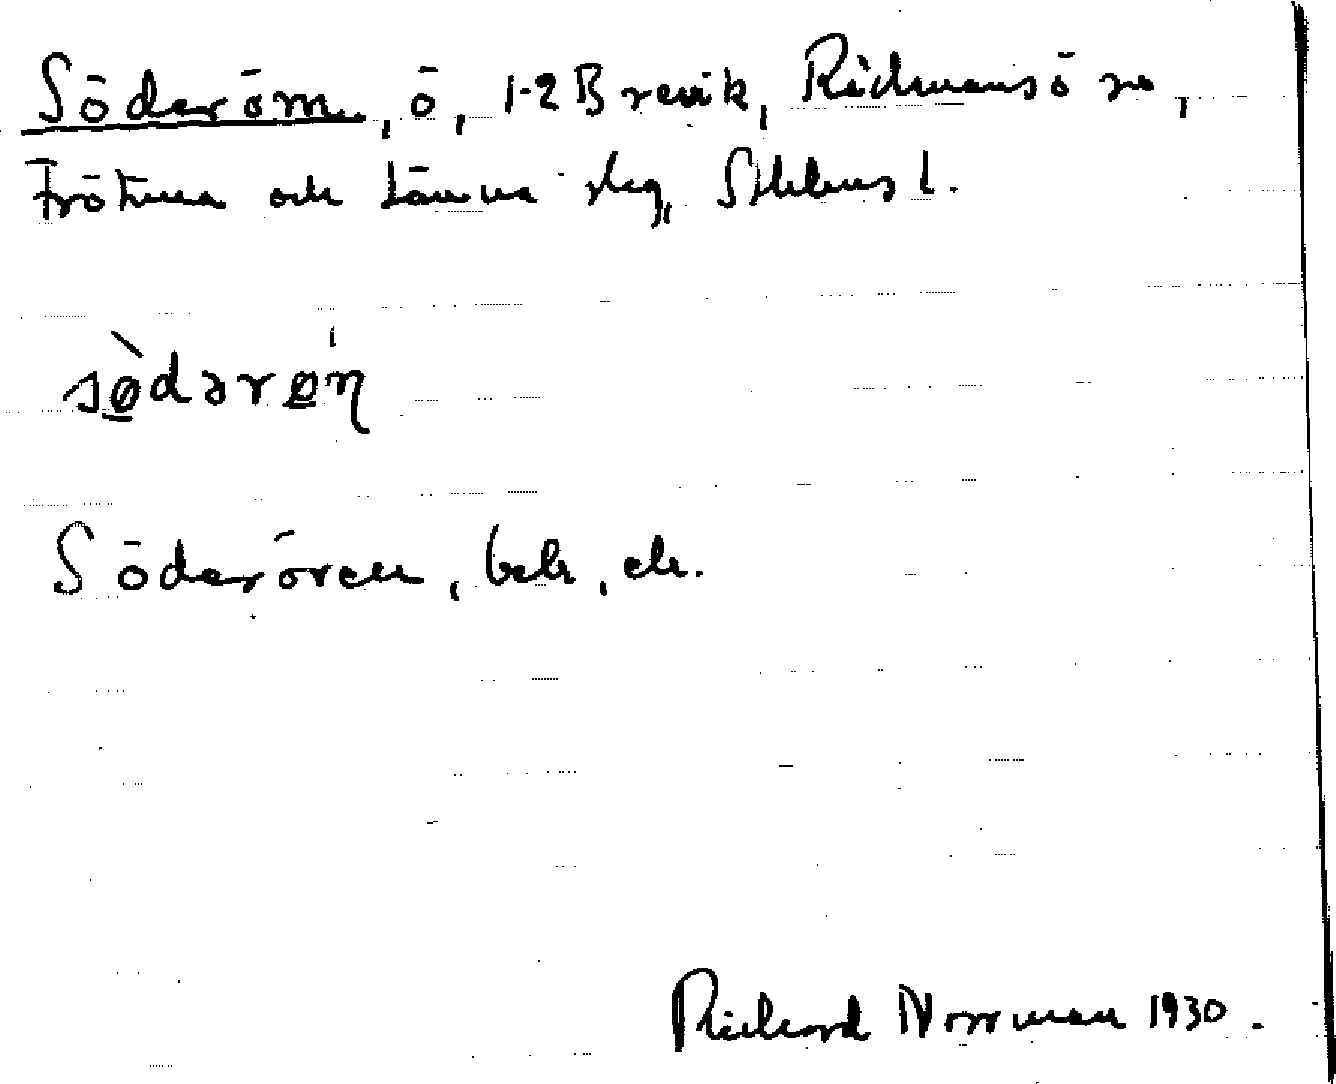 Söderöm, ö, 1-2 Brevik, Rådmansö sn,
Frötuna och Länna slg, Sthlms l.
sø̀dərøˈn
Söderören, beb., ek.
Richard Norrman 1930.